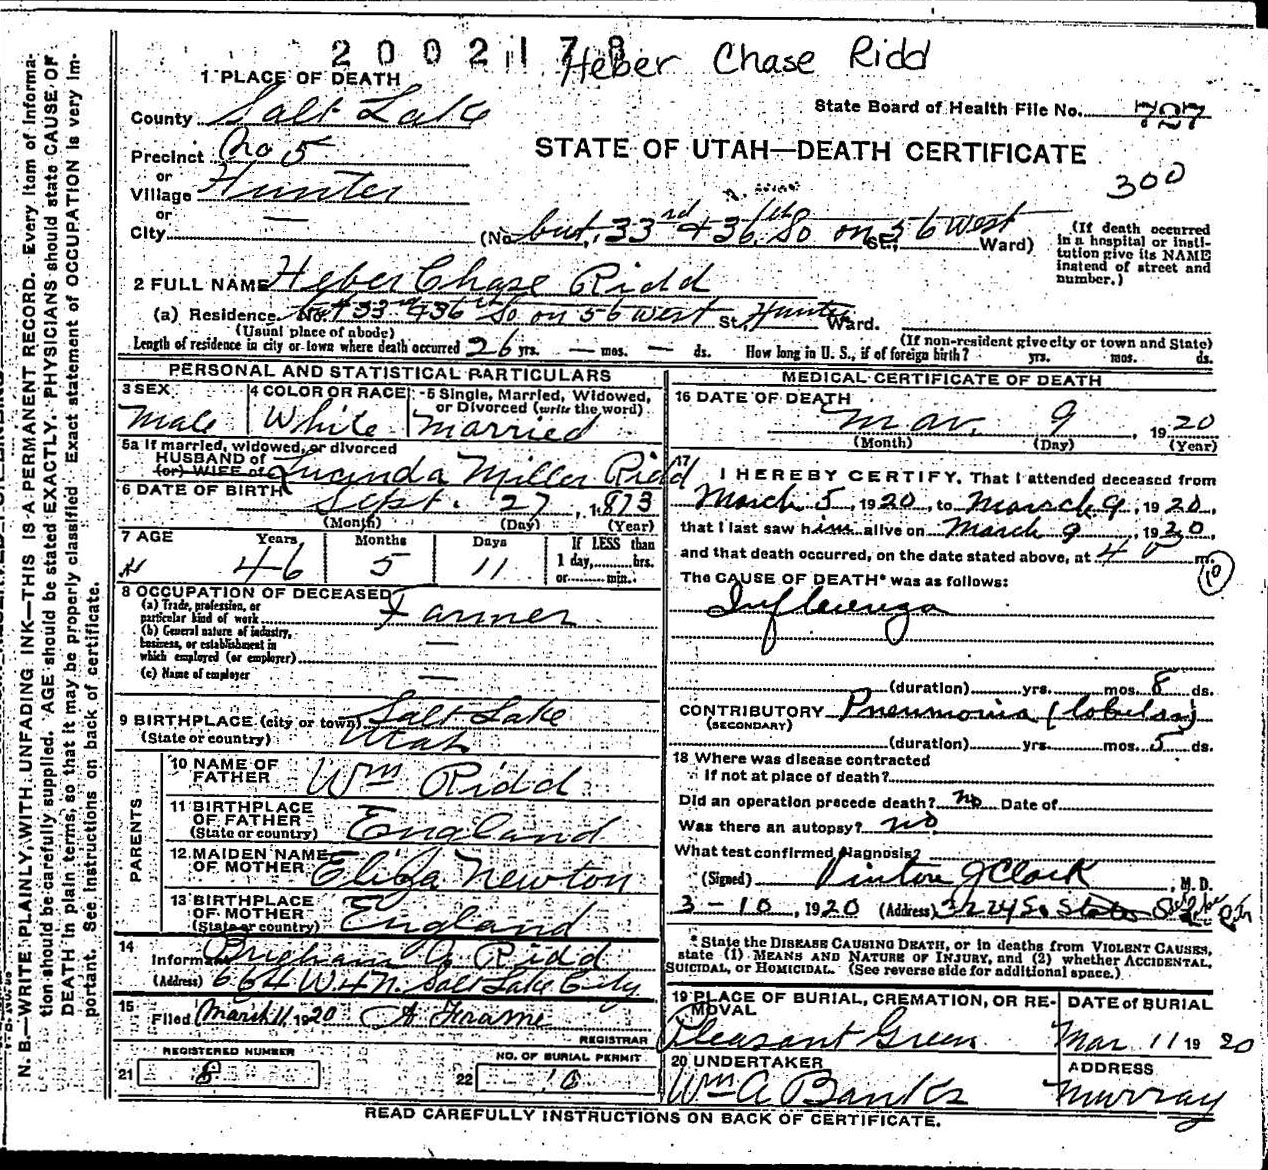 2002178
Heber Chase Ridd
1 PLACE OF DEATH
County Salt Lake
State Board of Health File No. 727
Precinct No 5
STATE OF UTAH—DEATH CERTIFICATE
300
or
Village Hunter
or
City —
(No. bet. 33rd & 36th So on 56 West St., Ward)
(If death occurred in a hospital or institution give its NAME instead of street and number.)
2 FULL NAME Heber Chase Ridd
(a) Residence. No. 33rd & 36th So on 56 West St. Hunter Ward.
(Usual place of abode)
(If non-resident give city or town and State)
Length of residence in city or town where death occurred 26 yrs. — mos. — ds. How long in U. S., if of foreign birth? yrs. mos. ds.
PERSONAL AND STATISTICAL PARTICULARS
3 SEX Male
4 COLOR OR RACE White
5 Single, Married, Widowed, or Divorced (write the word) Married
5a If married, widowed, or divorced
HUSBAND of
(or) WIFE of Lucinda Miller Ridd
6 DATE OF BIRTH Sept. 27, 1873
(Month) (Day) (Year)
7 AGE Years Months Days If LESS than
46 5 11 1 day, hrs.
or min.
8 OCCUPATION OF DECEASED
(a) Trade, profession, or particular kind of work Farmer
(b) General nature of industry, business, or establishment in which employed (or employer) —
(c) Name of employer —
9 BIRTHPLACE (city or town) Salt Lake
(State or country) Utah
PARENTS
10 NAME OF FATHER Wm Ridd
11 BIRTHPLACE OF FATHER (State or country) England
12 MAIDEN NAME OF MOTHER Eliza Newton
13 BIRTHPLACE OF MOTHER (State or country) England
14 Informant Brigham A Ridd
(Address) 664 W. 4 N. Salt Lake City
15 Filed March 11, 1920 A Frame
REGISTRAR
REGISTERED NUMBER
21 8
NO. OF BURIAL PERMIT
22
MEDICAL CERTIFICATE OF DEATH
16 DATE OF DEATH
Mar. 9, 1920
(Month) (Day) (Year)
17 I HEREBY CERTIFY, That I attended deceased from
March 5, 1920, to March 9, 1920
that I last saw him alive on March 9, 1920
and that death occurred, on the date stated above, at 4 m.
10
The CAUSE OF DEATH* was as follows:
Influenza
(duration) yrs. mos. 8 ds.
CONTRIBUTORY Pneumonia (lobular)
(SECONDARY)
(duration) yrs. mos. 5 ds.
18 Where was disease contracted
if not at place of death?
Did an operation precede death? no Date of
Was there an autopsy? no
What test confirmed diagnosis?
(Signed) Vinton J Clark, M. D.
3-10, 1920 (Address) So. State
* State the DISEASE CAUSING DEATH, or in deaths from VIOLENT CAUSES,
state (1) MEANS AND NATURE OF INJURY, and (2) whether ACCIDENTAL,
SUICIDAL, or HOMICIDAL. (See reverse side for additional space.)
19 PLACE OF BURIAL, CREMATION, OR REMOVAL
Pleasant Green
DATE of BURIAL
Mar 11 1920
20 UNDERTAKER
Wm A Banks
ADDRESS
Murray
READ CAREFULLY INSTRUCTIONS ON BACK OF CERTIFICATE.
N. B.—WRITE PLAINLY, WITH UNFADING INK—THIS IS A PERMANENT RECORD. Every item of information should be carefully supplied. AGE should be stated EXACTLY. PHYSICIANS should state CAUSE OF
DEATH in plain terms, so that it may be properly classified. Exact statement of OCCUPATION is very important. See instructions on back of certificate.